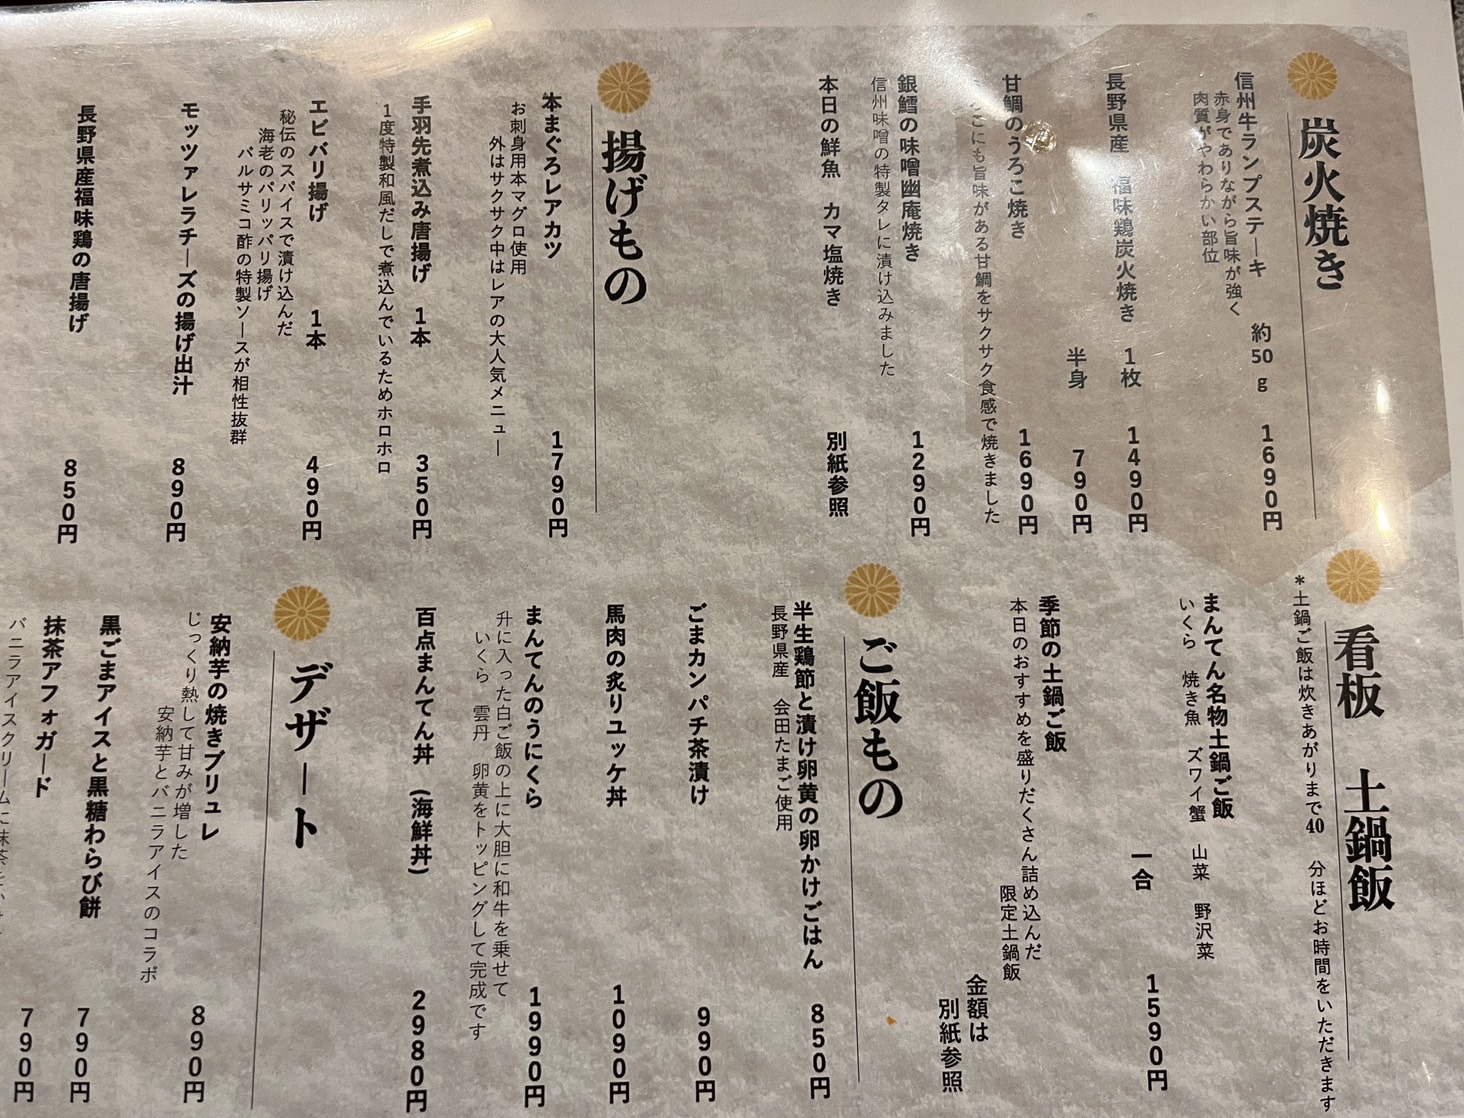 炭火焼き
信州牛ランプステーキ 約50g 1690円
赤身でありながら旨味が強く
肉質がやわらかい部位
長野県産 福味鶏炭火焼き 1枚 1490円
半身 790円
甘鯛のうろこ焼き 1690円
にも旨味がある甘鯛をサクサク食感で焼きました
銀鱈の味噌幽庵焼き 1290円
信州味噌の特製タレに漬け込みました
本日の鮮魚 カマ塩焼き 別紙参照
揚げもの
本まぐろレアカツ 1790円
お刺身用本マグロ使用
外はサクサク中はレアの大人気メニュー
手羽先煮込み唐揚げ 1本 350円
1度特製和風だしで煮込んでいるためホロホロ
エビバリ揚げ 1本 490円
秘伝のスパイスで漬け込んだ
海老のパリッパリ揚げ
バルサミコ酢の特製ソースが相性抜群
モッツァレラチーズの揚げ出汁 890円
長野県産福味鶏の唐揚げ 850円
看板 土鍋飯
*土鍋ご飯は炊きあがりまで40 分ほどお時間をいただきます
まんてん名物土鍋ご飯
いくら 焼き魚 ズワイ蟹 山菜 野沢菜
一合 1590円
季節の土鍋ご飯
本日のおすすめを盛りだくさん詰め込んだ
限定土鍋飯
金額は
別紙参照
ご飯もの
半生鶏節と漬け卵黄の卵かけごはん 850円
長野県産 会田たまご使用
ごまカンパチ茶漬け 990円
馬肉の炙りユッケ丼 1090円
まんてんのうにくら 1990円
升に入った白ご飯の上に大胆に和牛を乗せて
いくら 雲丹 卵黄をトッピングして完成です
百点まんてん丼 (海鮮丼) 2980円
デザート
安納芋の焼きブリュレ 890円
じっくり熱して甘みが増した
安納芋とバニラアイスのコラボ
黒ごまアイスと黒糖わらび餅 790円
抹茶アフォガード 790円
バニラアイスクリームに抹茶を